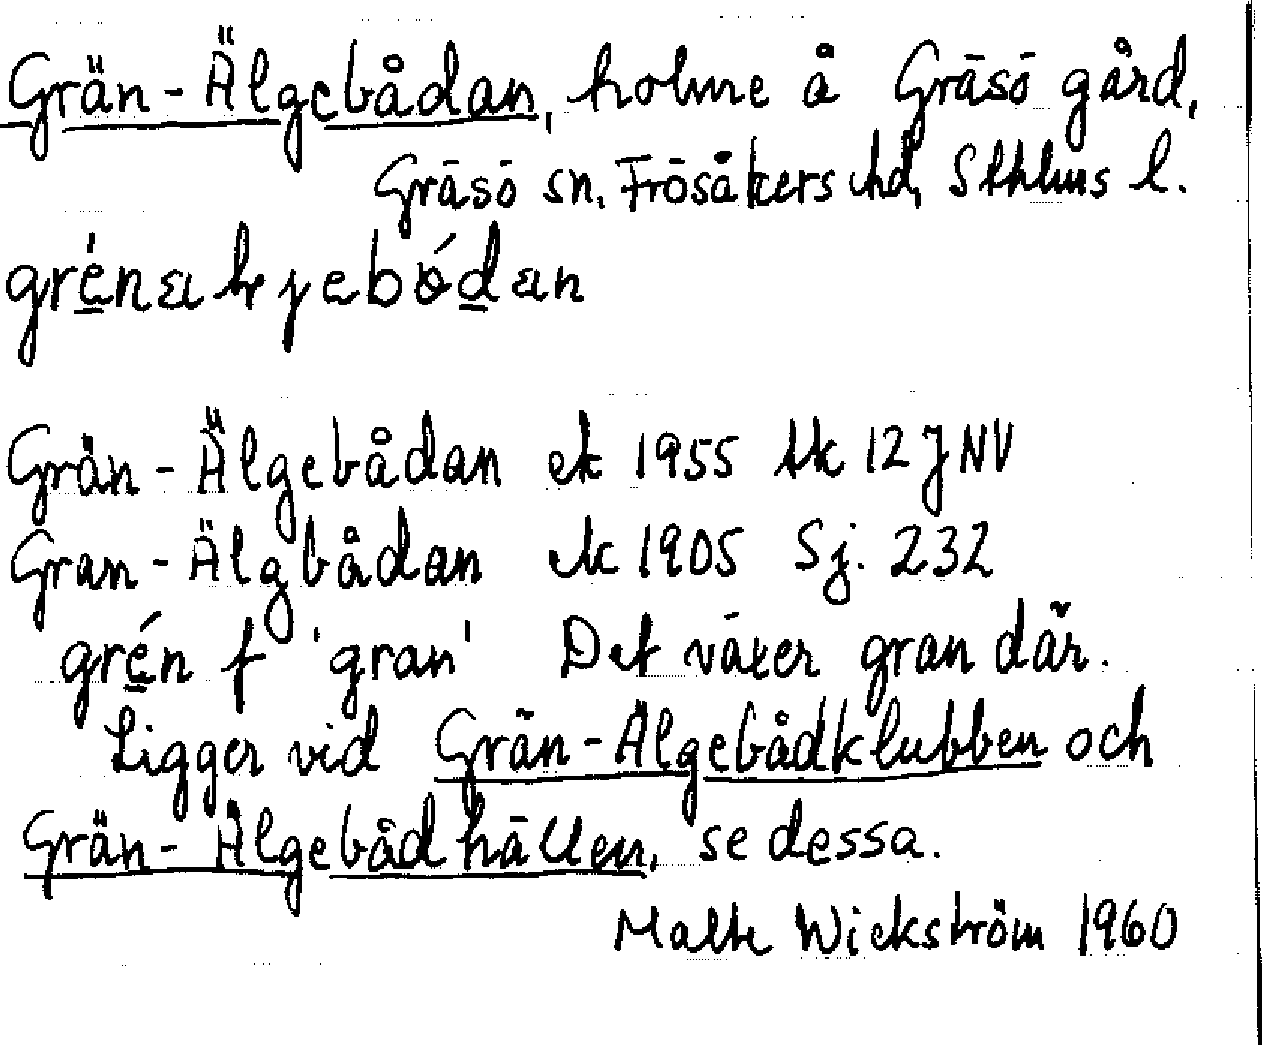 Grän-Älgebådan, holme å Gräsö gård,
Gräsö sn, Frösåkers hd, Sthlms l.
Grän-Älgebådan ek 1955 blk 12 J NV
Gran-Älgbådan ek 1905 Sj. 232
grén f 'gran' Det växer gran där.
Ligger vid Grän-Älgebådklubben och
Grän-Älgebådhällen, se dessa.
Malte Wickström 1960